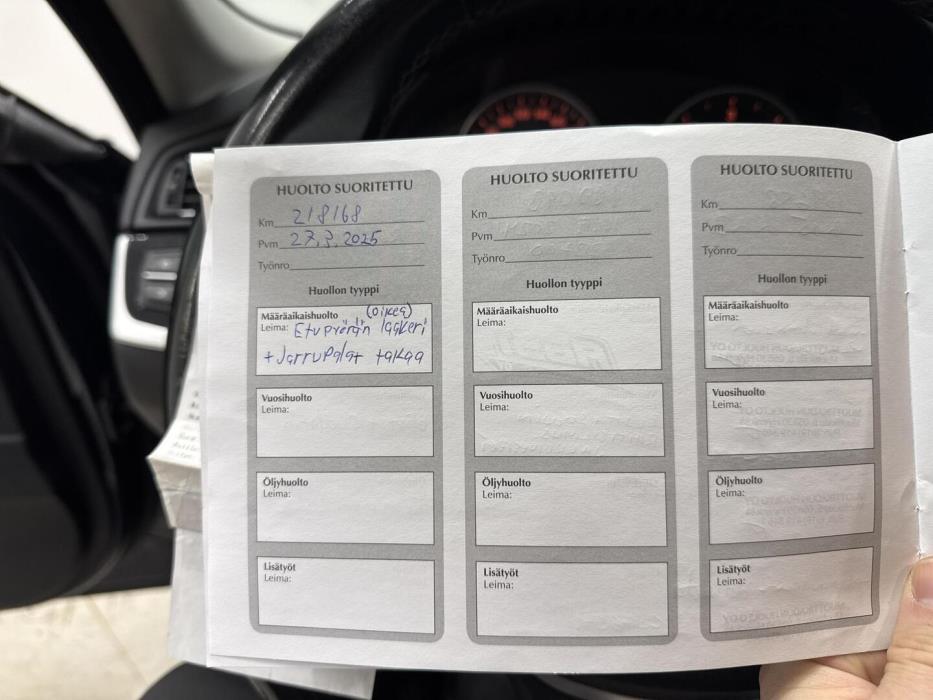 HUOLTO SUORITETTU
Km 218168
Pvm 27.3.2025
Työnro
Huollon tyyppi
Määräaikaishuolto (oikea)
Leima: Etupyörän laakeri
+Jarrupalat takaa
Vuosihuolto
Leima:
Öljyhuolto
Leima:
Lisätyöt
Leima:
HUOLTO SUORITETTU
Km
Pvm
Työnro
Huollon tyyppi
Määräaikaishuolto
Leima:
Vuosihuolto
Leima:
Öljyhuolto
Leima:
Lisätyöt
Leima:
HUOLTO SUORITETTU
Km
Pvm
Työnro
Huollon tyyppi
Määräaikaishuolto
Leima:
Vuosihuolto
Leima:
Öljyhuolto
Leima:
Lisätyöt
Leima: